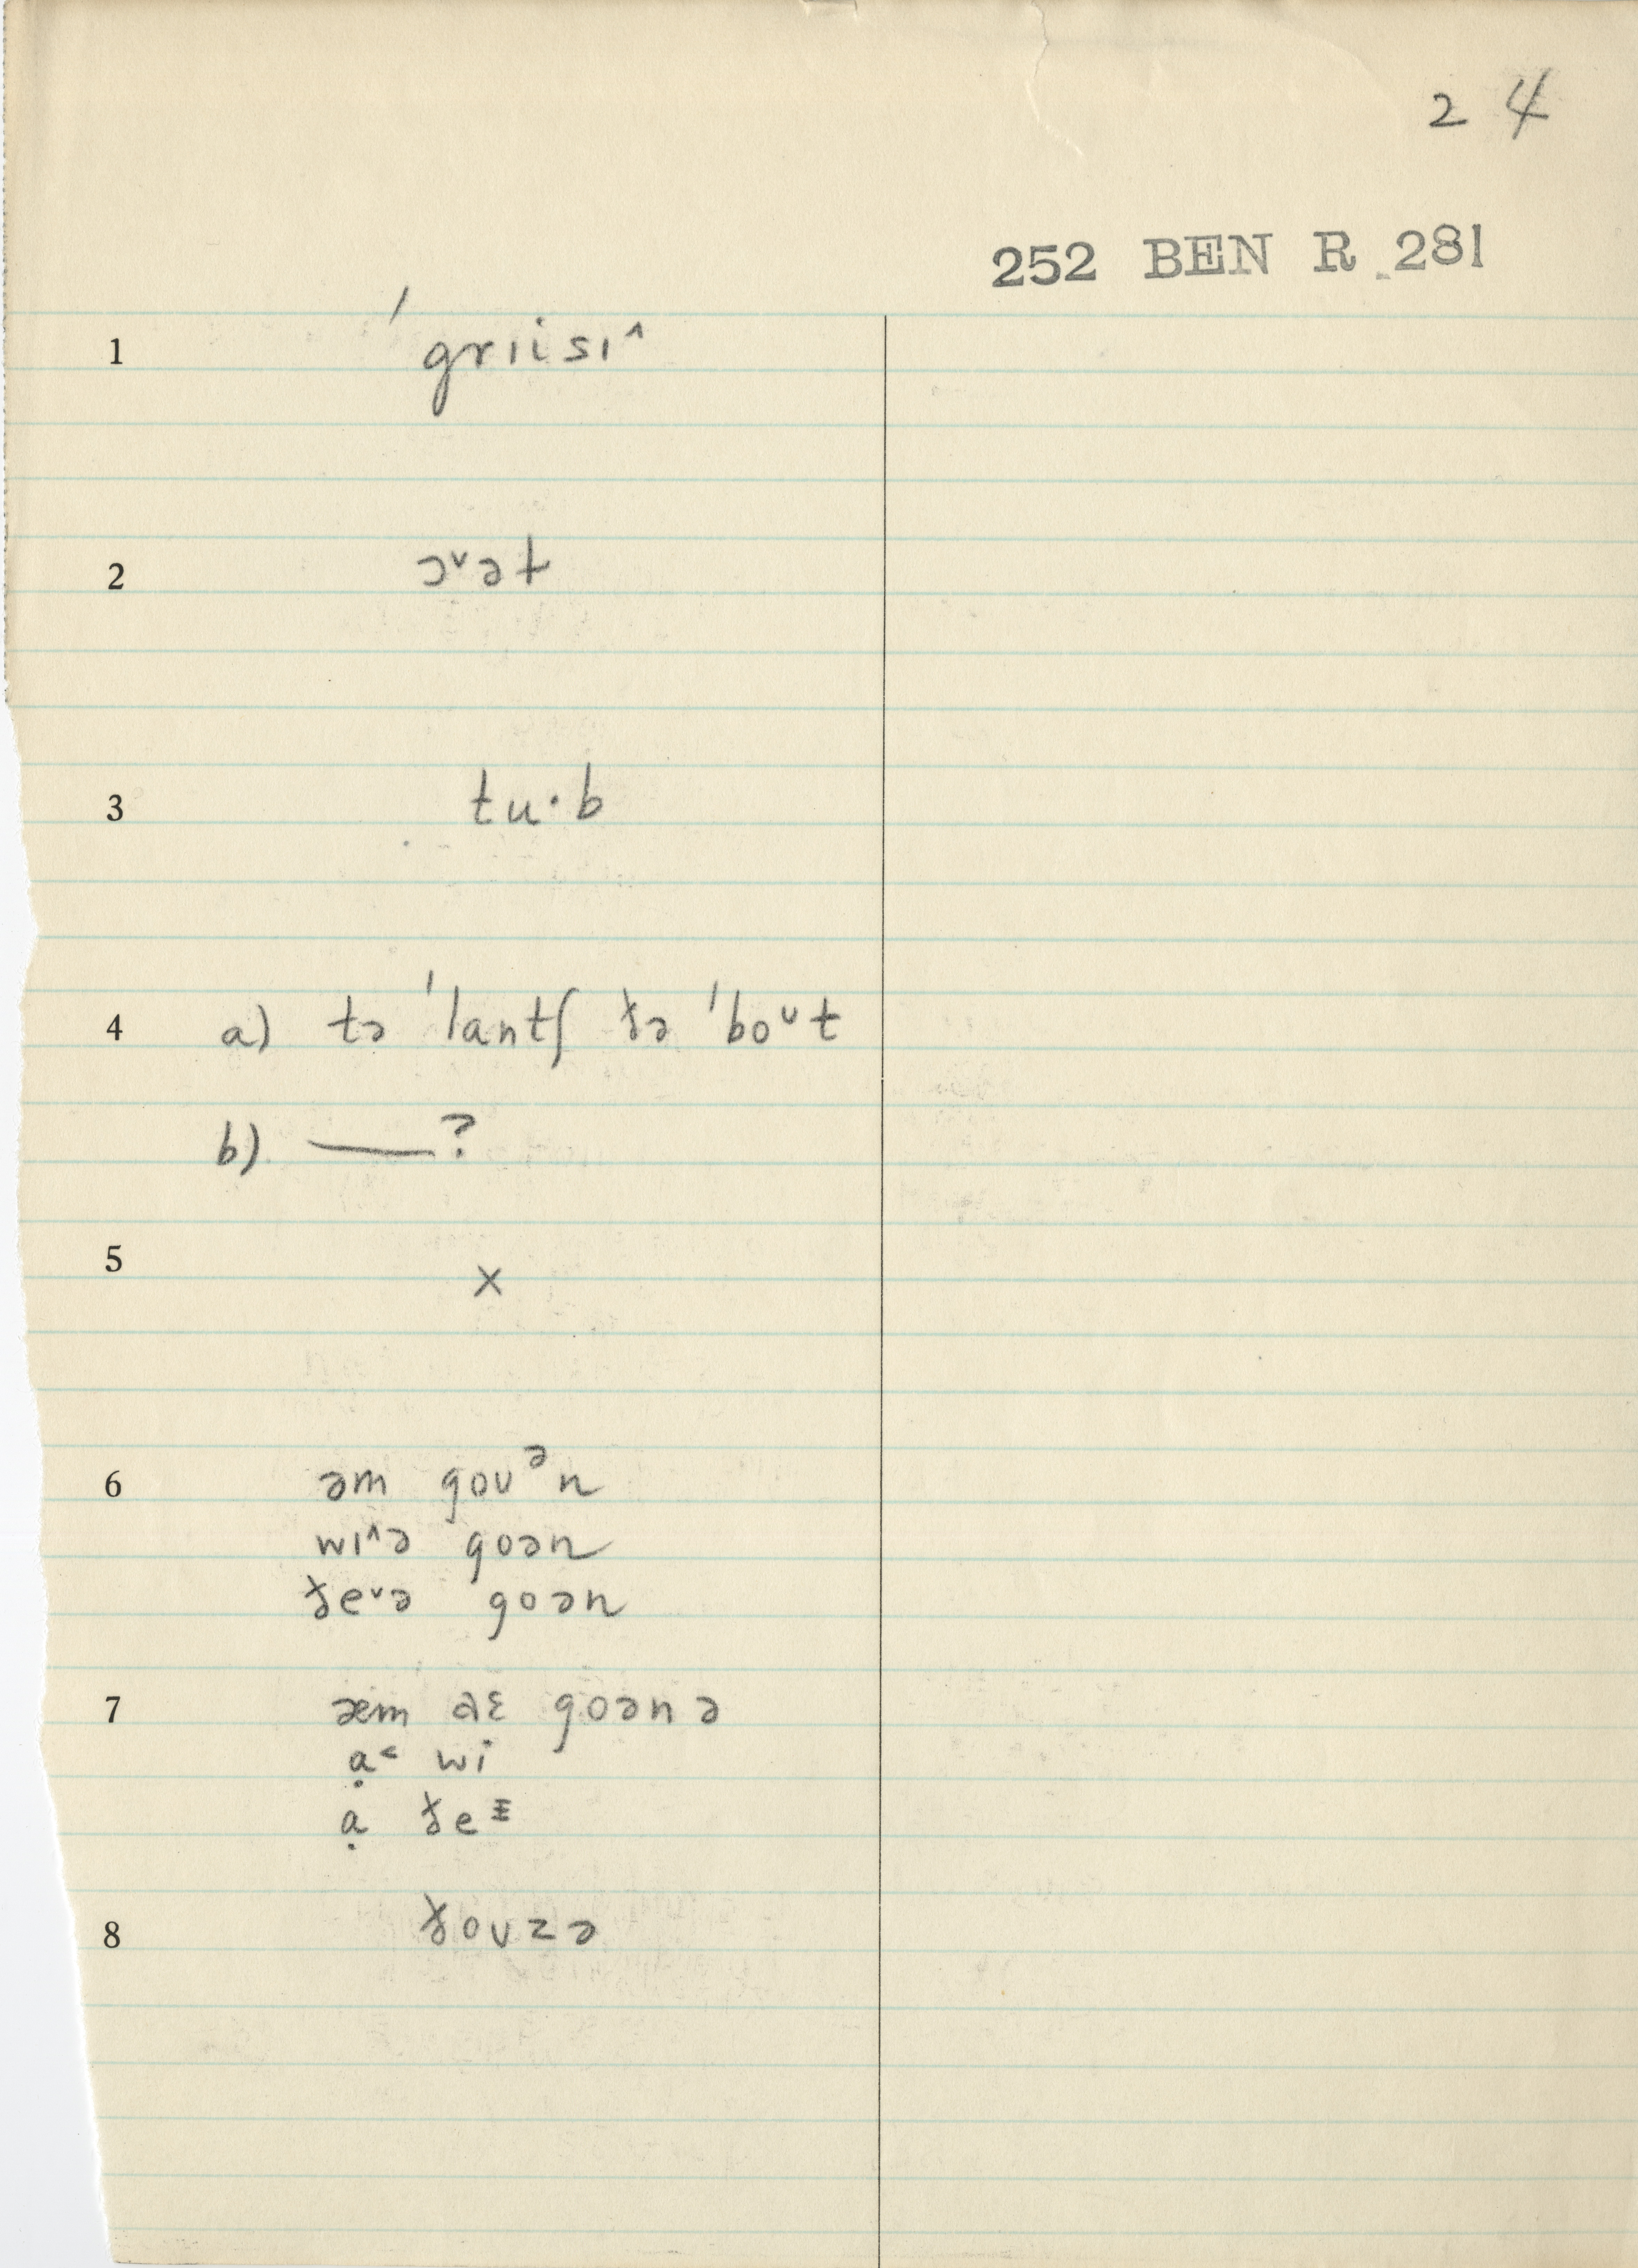 2 4
252 BEN R 281
1 ˈgrɪisɪ˄
2 ɔ˅ət
3 tu·b
4 a) tə ˈlantʃ ðə ˈbo˅t
b) ——?
5 x
6 əm goʊᵊn
wɪ˄ə goən
ðe˅ə goən
7 æm aɛ goənə
ạ˂ wi
ạ ðeᶾ
8 ðoʊzə